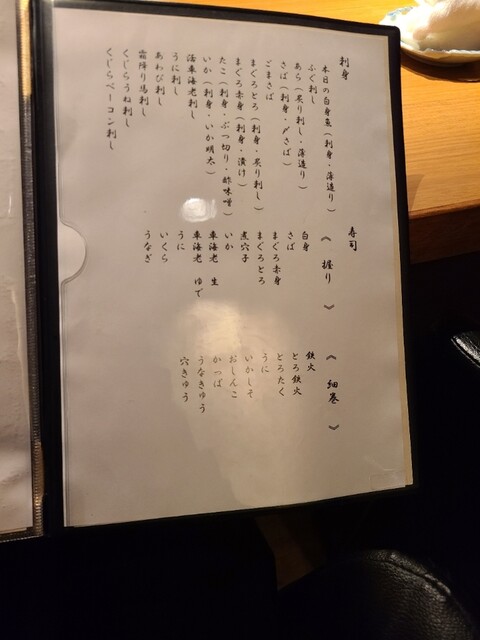 刺身
本日の白身魚（刺身・薄造り）
ふぐ刺し
あら（炙り刺し・薄造り）
さば（刺身・〆さば）
ごまさば
まぐろとろ（刺身・炙り刺し）
まぐろ赤身（刺身・漬け）
たこ（刺身・ぶつ切り・酢味噌）
いか（刺身・いか明太）
活車海老刺し
うに刺し
あわび刺し
霜降り馬刺し
くじらうね刺し
くじらベーコン刺し
寿司
《 握り 》
白身
さば
まぐろ赤身
まぐろとろ
煮穴子
いか
車海老 生
車海老 ゆで
うに
いくら
うなぎ
《 細巻 》
鉄火
とろ鉄火
とろたく
うに
いかしそ
おしんこ
かっぱ
うなきゅう
穴きゅう